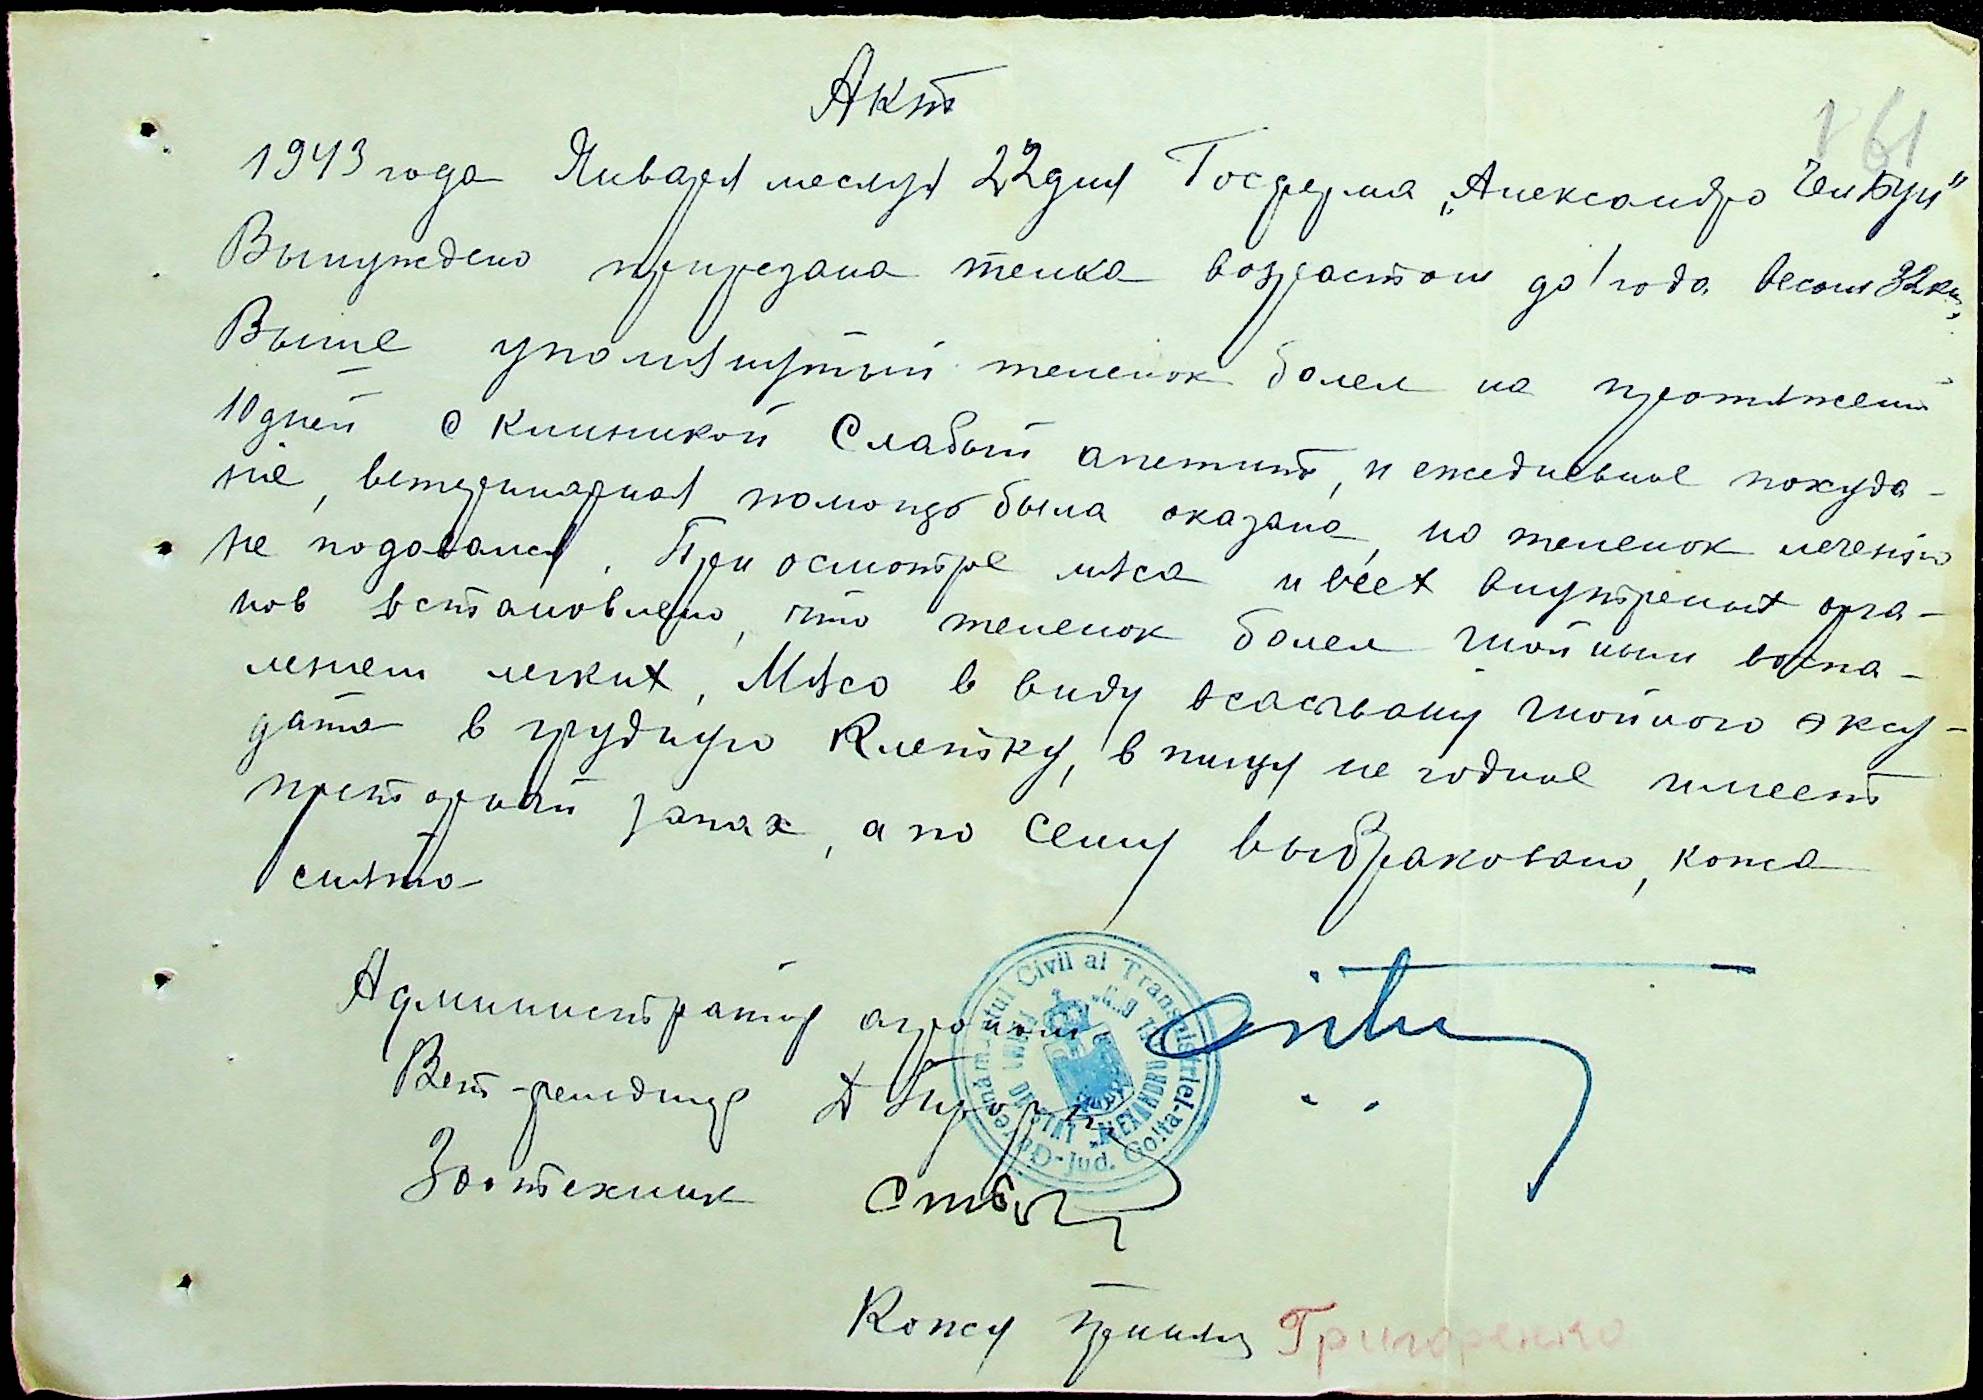 Акт
161
1943 года Января месяця 22 дня Госферма „Александро Чел Бун"
Вынуждено прирезана телка возрастом до 1 года весом 32 кг,
Выше упомянутый теленок болел на протяжении
10 дней с клиникой Слабый апетит, и ежедневное похуда-
ние, ветеринарная помощь была оказана, но теленок лечению
не подовался. При осмотре мяса и всех внутреных орга-
нов встановлено, что теленок болел гнойным воспа-
лением легких, Мясо в виду всасывану гнойного эксу-
дата в грудную Клетку, в пищу не годное имеет
приторный запах, а по сему выбраковано, кожа
снято
Администратор агроном
Вет-фельдшер
Зоотехник
Guvernământul Civil al Transnistriei - Jud. Golta
DE STAT „ALEXANDRU
Кожу принял Григоренко